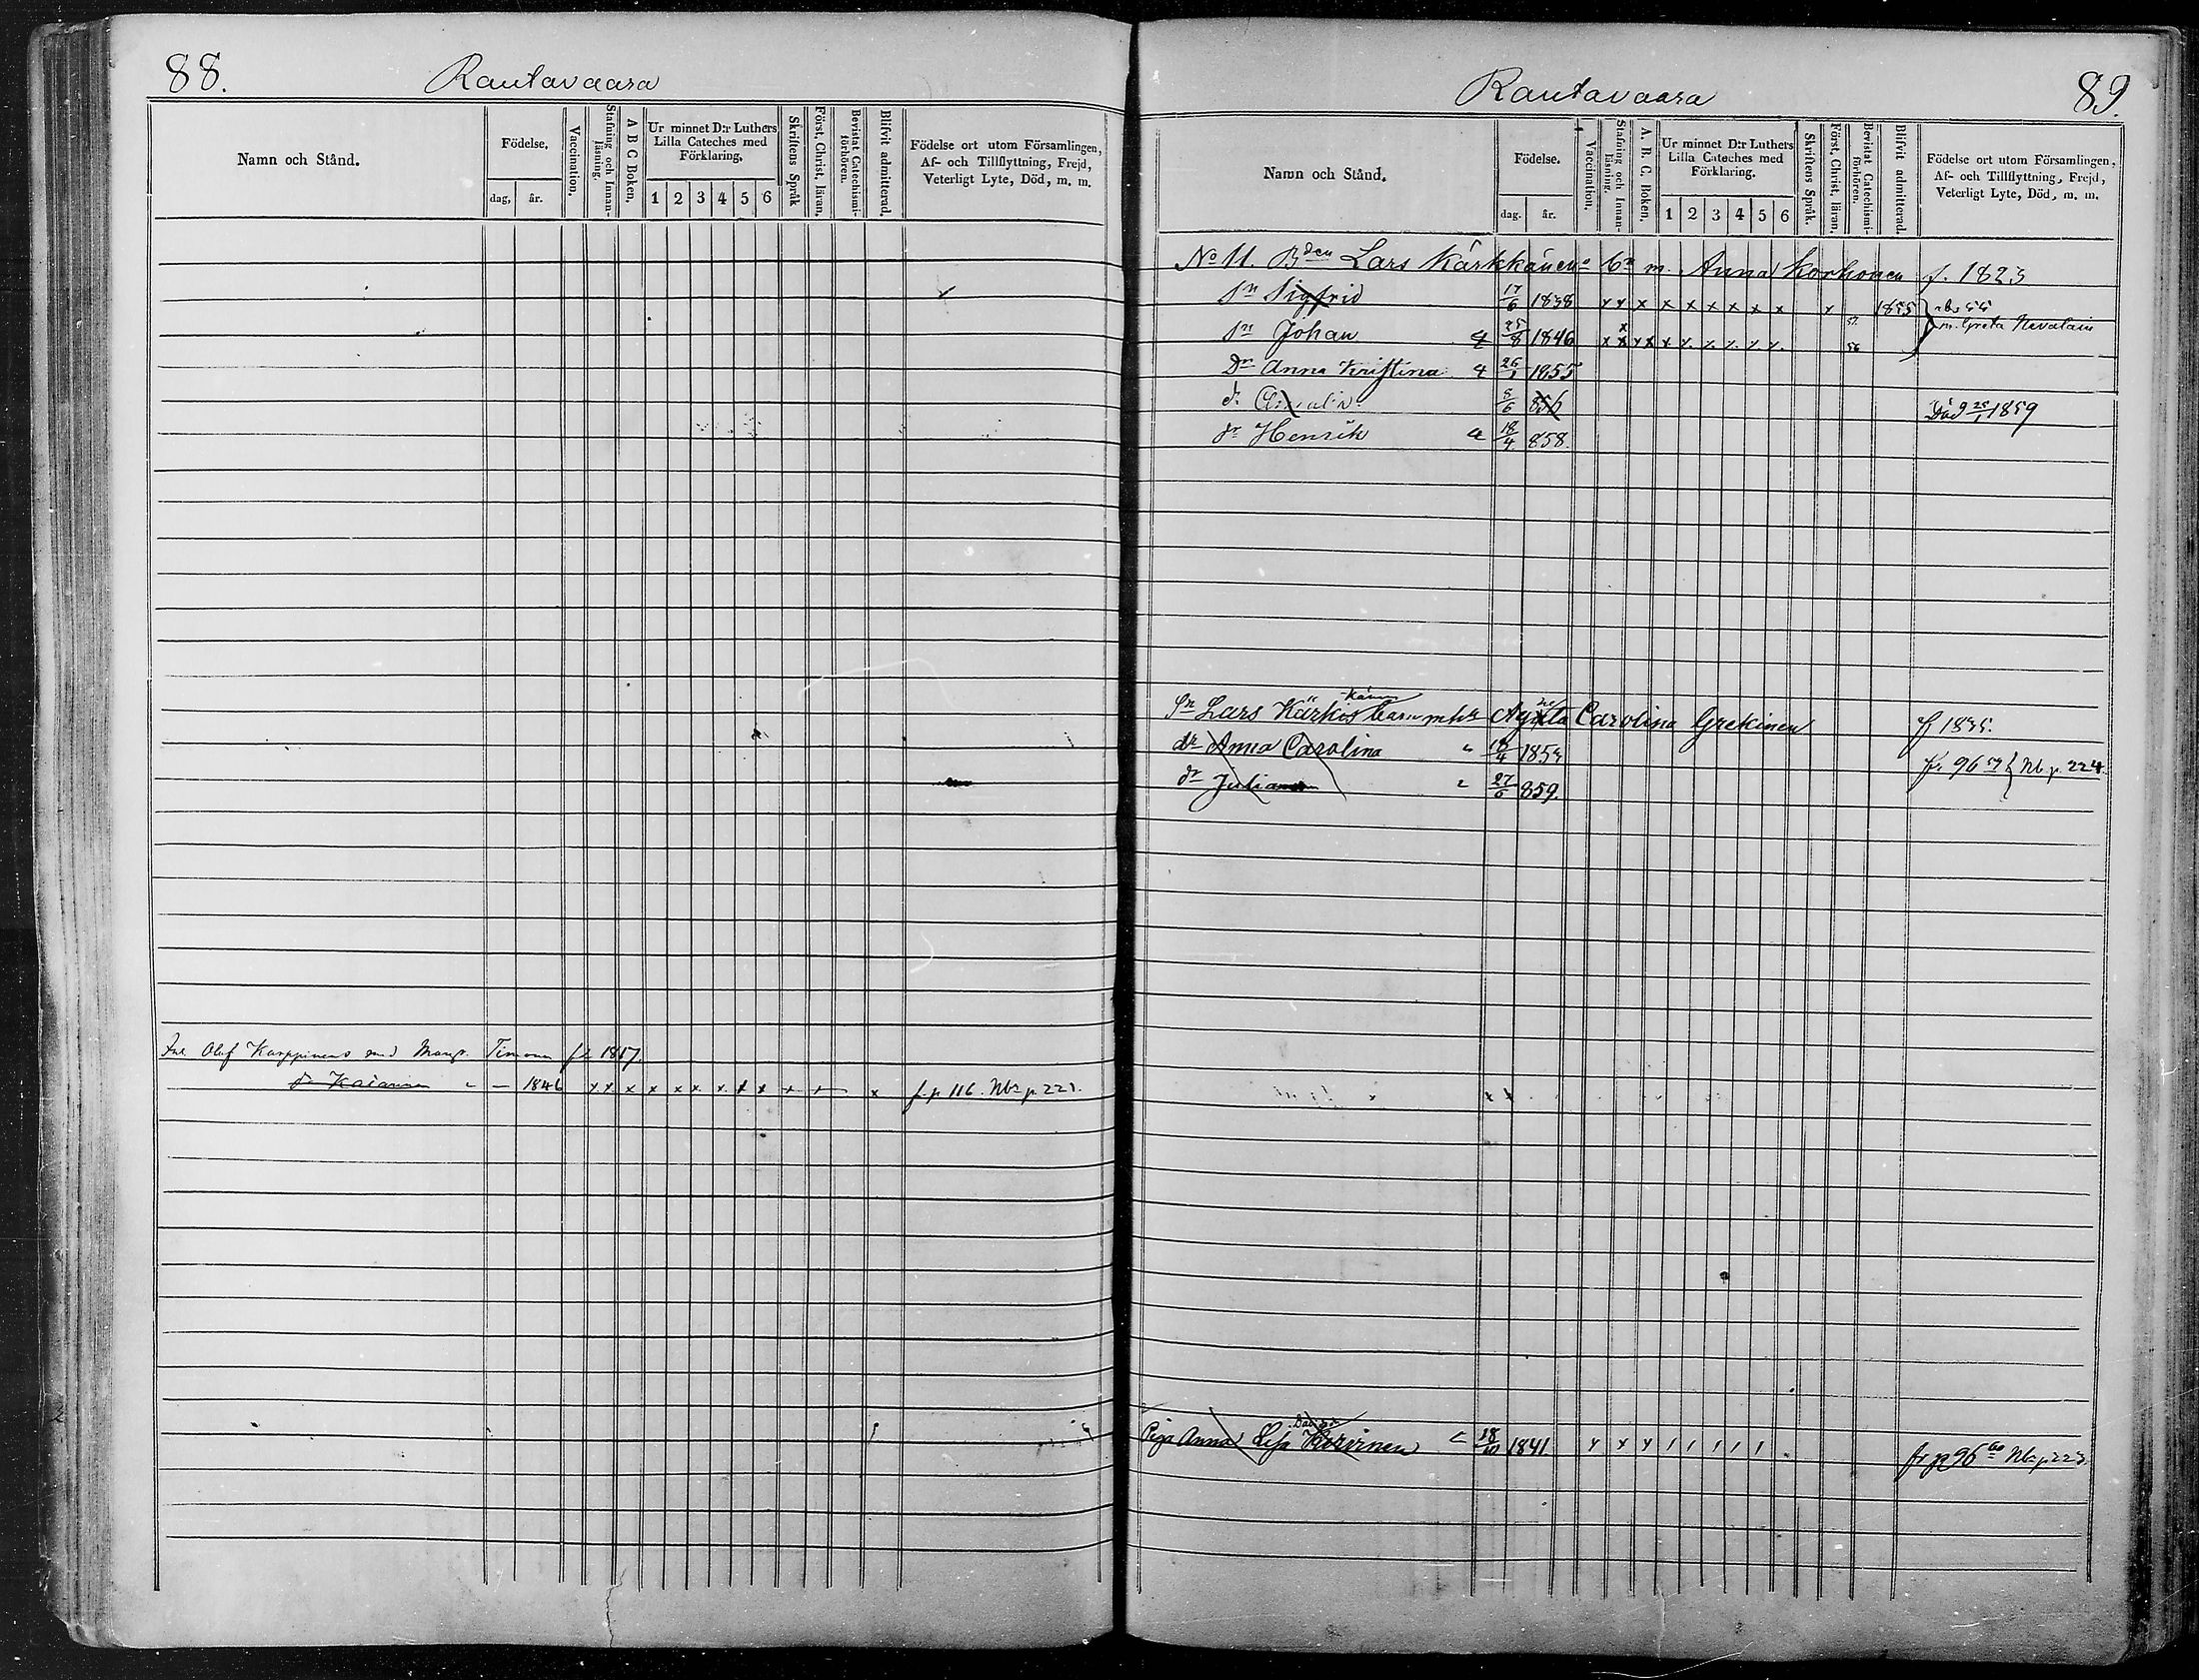 88.
Rantavaara
Namn och Stånd.
Födelse.
dag, år.
Vaccination.
Stafning och Innan-läsning.
A B C Boken.
Ur minnet D:r Luthers Lilla Cateches med Förklaring.
1 2 3 4 5 6
Skriftens Språk
Först. Christ. läran.
Bevistat Catechismi-förhören.
Blifvit admitterad.
Födelse ort utom Församlingen,
Af- och Tillflyttning, Frejd,
Veterligt Lyte, Död, m. m.
Olof Karppinens med Marg. Timonen 1817.
dr Kaiarina - 1846 x x x x x x x x x x x x x f. p 116. Nb p. 221.
Rantavaara
89.
Namn och Stånd.
Födelse.
dag. år.
Vaccination.
Stafning och Innan-läsning.
A. B. C. Boken.
Ur minnet D:r Luthers Lilla Cateches med Förklaring.
1 2 3 4 5 6
Skriftens Språk.
Först. Christ. läran
Bevistat Catechismi-förhören.
Blifvit admitterad.
Födelse ort utom Församlingen,
Af- och Tillflyttning, Frejd,
Veterligt Lyte, Död, m. m.
No 11. Bden Lars Kärkkänens bn m. Anna Korhonen f. 1823
Sn Sigfrid 17/6 1838 x x x x x x x x x x 1855
m. Greta Nevalain
Sn Johan 25/8 1846 x x x x x x x x x x 56
Dr Anna Kristina 26/1 1855
d. 5/6 856 Död 25/1 1859
Henrik 18/4 858.
Sn Lars Kärki Barn m h Carolina Grekinen f 1835.
dr Anna Carolina 18/4 185 fr. 96 59 Nb p. 224.
dr Juliana 27/6 859.
Piga Anna Lisa 18/10 1841. x x x 1 1 1 1 1 fr p 96 60 Nb p 223.